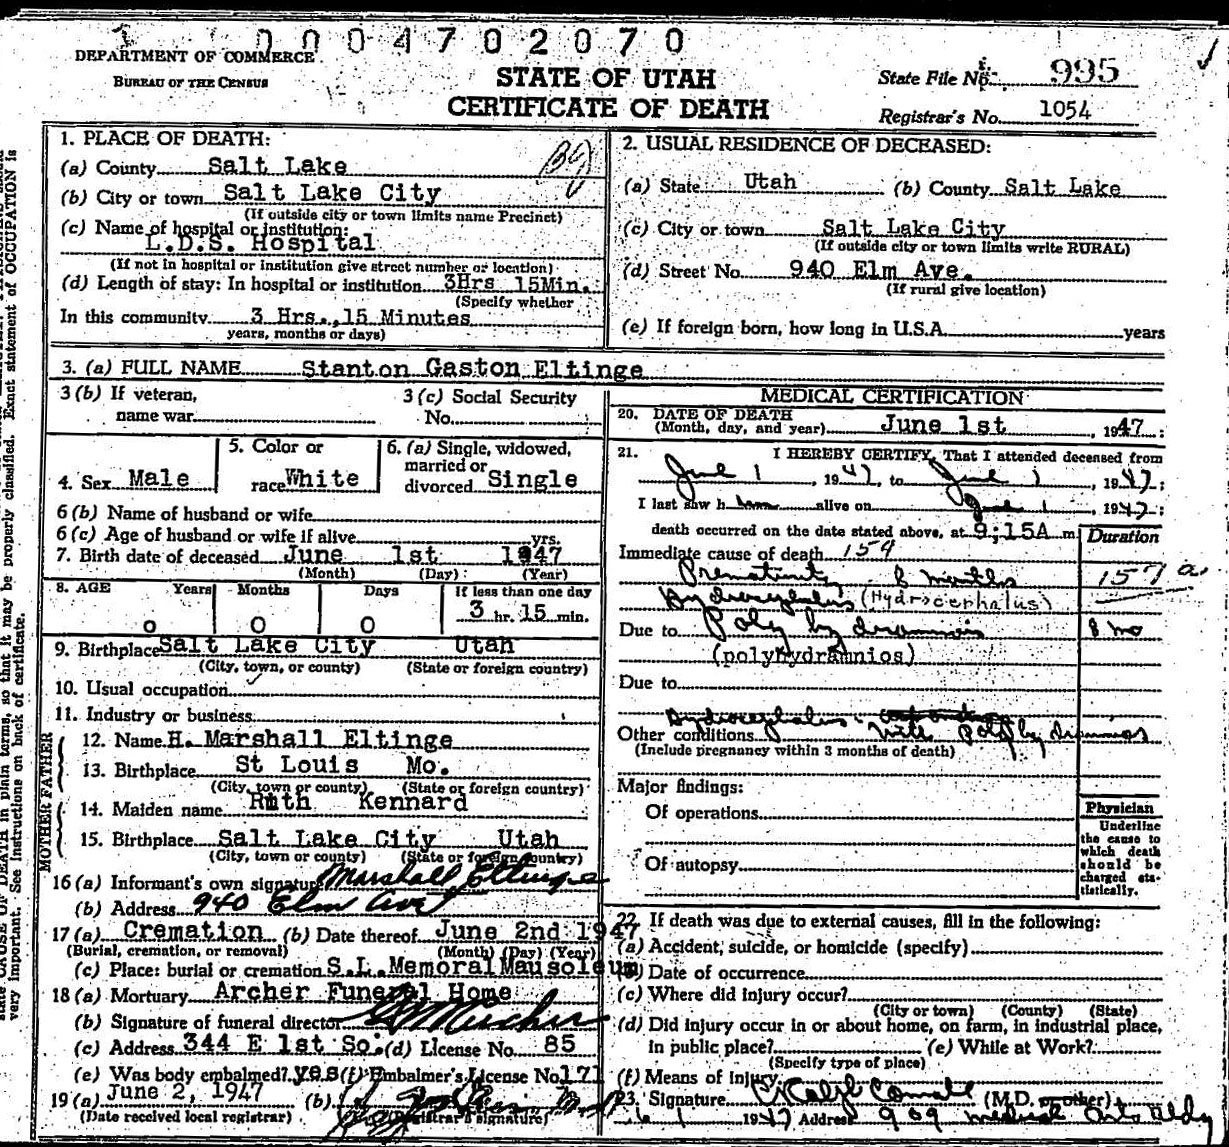 0004702070
DEPARTMENT OF COMMERCE
BUREAU OF THE CENSUS
STATE OF UTAH
CERTIFICATE OF DEATH
State File No. 995
Registrar's No. 1054
1. PLACE OF DEATH:
(a) County Salt Lake
(b) City or town Salt Lake City
(If outside city or town limits name Precinct)
(c) Name of hospital or institution:
L.D.S. Hospital
(If not in hospital or institution give street number or location)
(d) Length of stay: In hospital or institution 3Hrs 15Min.
(Specify whether
In this community 3 Hrs.,15 Minutes
years, months or days)
2. USUAL RESIDENCE OF DECEASED:
(a) State Utah (b) County Salt Lake
(c) City or town Salt Lake City
(If outside city or town limits write RURAL)
(d) Street No. 940 Elm Ave.
(If rural give location)
(e) If foreign born, how long in U.S.A. years
3. (a) FULL NAME Stanton Gaston Eltinge
3 (b) If veteran,
name war
3 (c) Social Security
No.
4. Sex Male
5. Color or
race White
6. (a) Single, widowed,
married or
divorced Single
6 (b) Name of husband or wife
6 (c) Age of husband or wife if alive yrs.
7. Birth date of deceased June 1st 1947
(Month) (Day) (Year)
8. AGE Years Months Days If less than one day
0 0 0 3 hr. 15 min.
9. Birthplace Salt Lake City Utah
(City, town, or county) (State or foreign country)
10. Usual occupation
11. Industry or business
FATHER
12. Name H. Marshall Eltinge
13. Birthplace St Louis Mo.
(City, town or county) (State or foreign country)
MOTHER
14. Maiden name Ruth Kennard
15. Birthplace Salt Lake City Utah
(City, town or county) (State or foreign country)
16 (a) Informant's own signature Marshall Eltinge
(b) Address 940 Elm Ave
17 (a) Cremation (b) Date thereof June 2nd 1947
(Burial, cremation, or removal) (Month) (Day) (Year)
(c) Place: burial or cremation S.L.Memoral Mausoleum
18 (a) Mortuary Archer Funeral Home
(b) Signature of funeral director
(c) Address 344 E 1st So. (d) License No. 85
(e) Was body embalmed? yes (f) Embalmer's License No 171
19 (a) June 2, 1947 (b)
(Date received local registrar) (Registrar's signature)
MEDICAL CERTIFICATION
20. DATE OF DEATH
(Month, day, and year) June 1st, 1947
21. I HEREBY CERTIFY, That I attended deceased from
June 1, 1947, to June 1, 1947;
I last saw him alive on June 1, 1947;
death occurred on the date stated above, at 9:15A m
Duration
Immediate cause of death 159
Prematurity 8 months
157 a
Hydrocephalus (Hydrocephalus)
Due to Polyhydramnios 8 mo
(polyhydramnios)
Due to
Hydrocephalus
Other conditions with polyhydramnios
(Include pregnancy within 3 months of death)
Major findings:
Of operations
Of autopsy
Physician
Underline
the cause to
which death
should be
charged sta-
tistically.
22. If death was due to external causes, fill in the following:
(a) Accident, suicide, or homicide (specify)
(b) Date of occurrence
(c) Where did injury occur?
(City or town) (County) (State)
(d) Did injury occur in or about home, on farm, in industrial place,
in public place? (e) While at Work?
(Specify type of place)
(f) Means of injury
23. Signature (M.D. or other)
6 1 1947 Address 909 Medical Arts Bldg
state CAUSE OF DEATH in plain terms, so that it may be properly classified. Exact statement of OCCUPATION is
very important. See instructions on back of certificate.